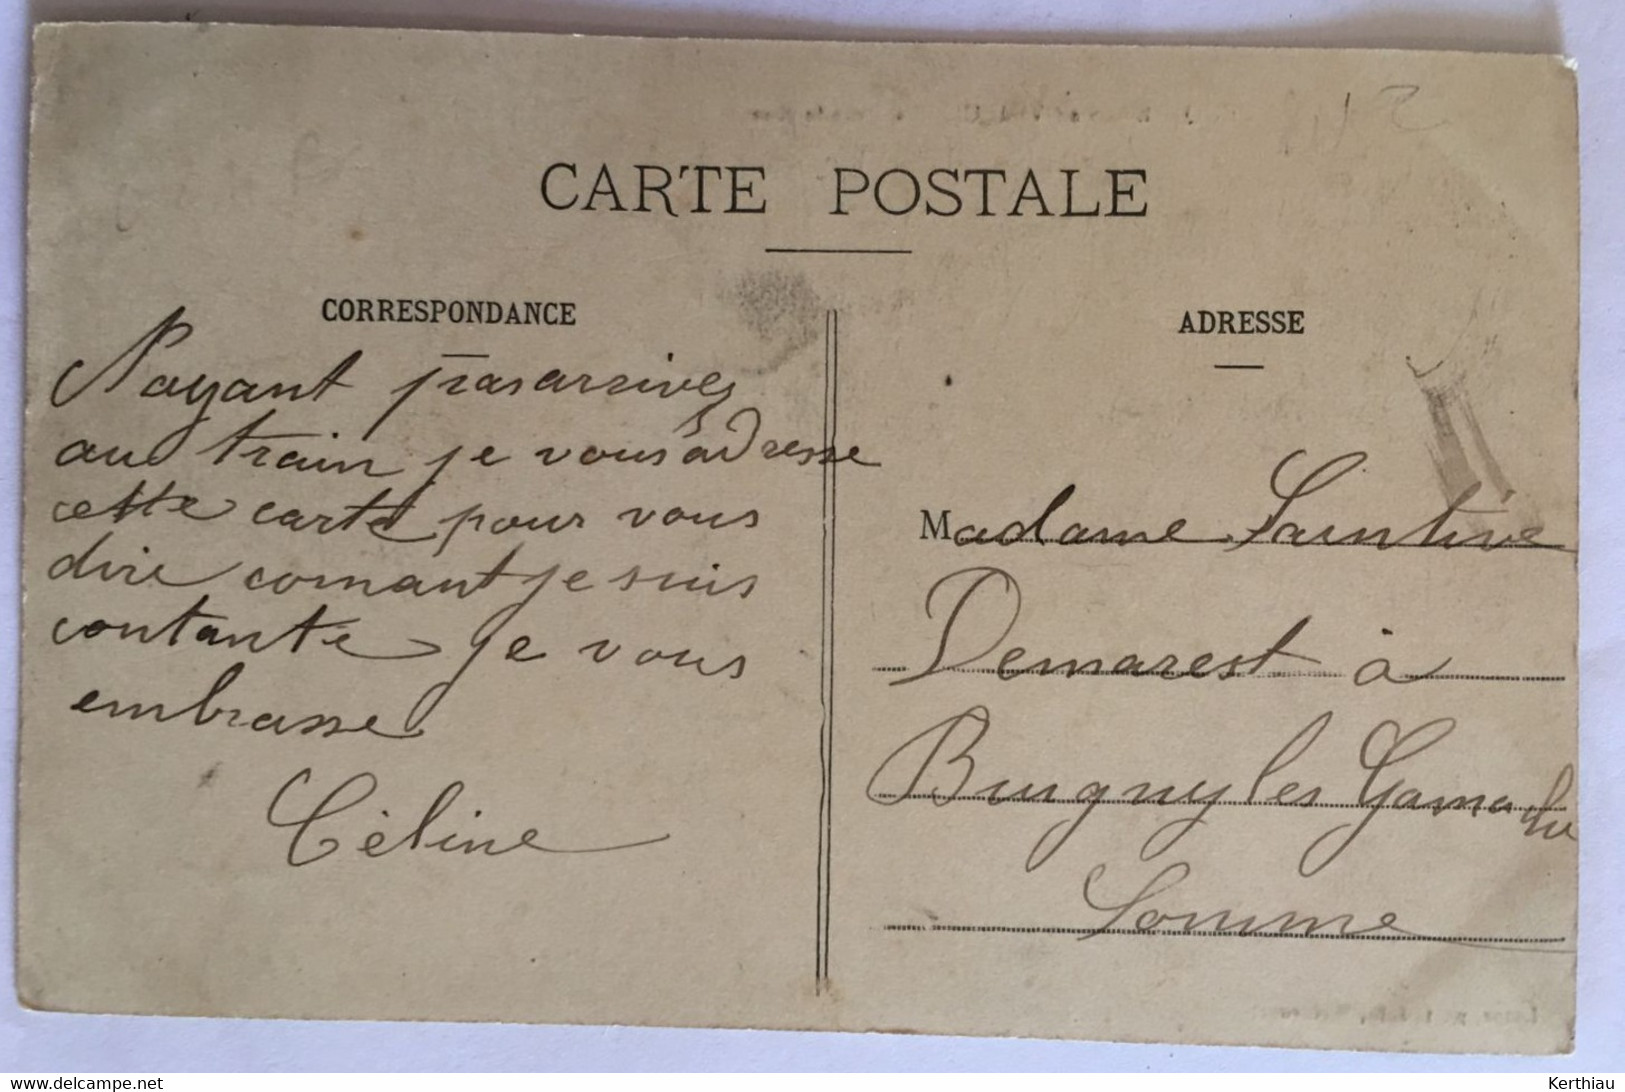 CARTE POSTALE
CORRESPONDANCE
Noyant pas arrivez
au train je vous adresse
cette carte pour vous
dire comant je suis
contante je vous
embrasse
Céline
ADRESSE
Madame Saintive
Demarest à
Buigny les Gamache
Somme
Kerthiau